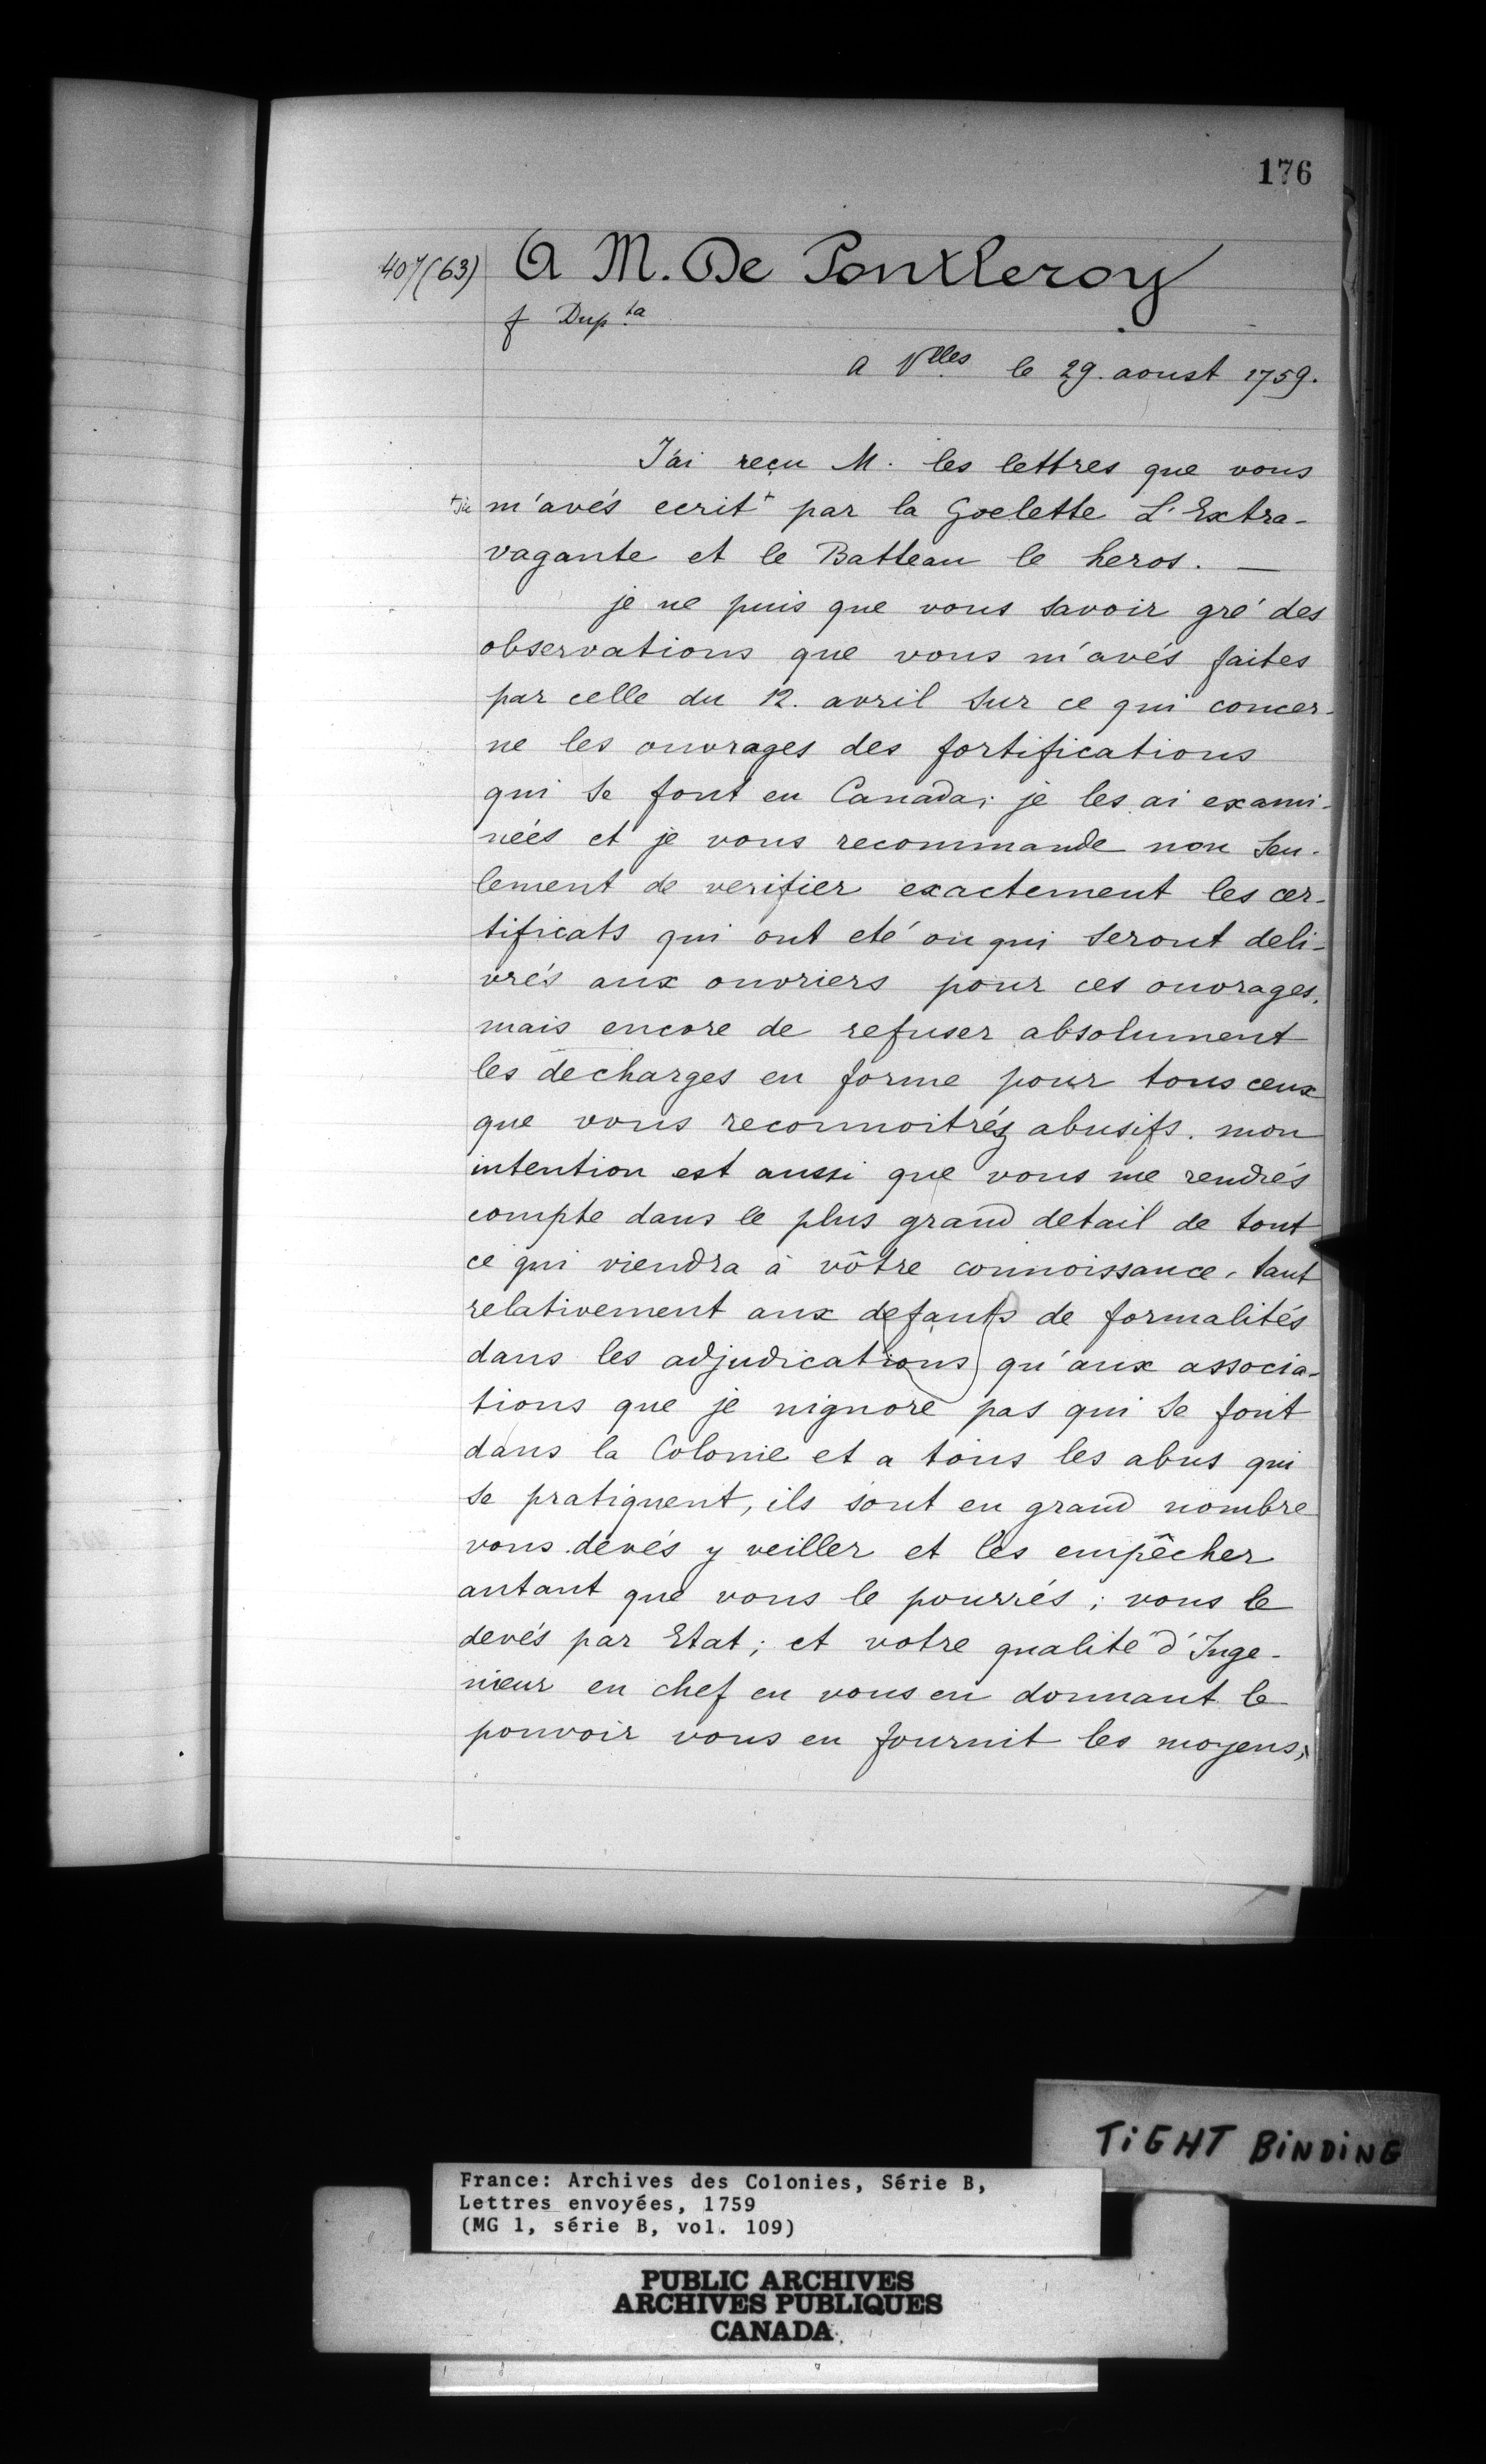 176
407(63) A M. De Pontleroy
f Dup.ta
A Vlles le 29. aoust 1759.
J'ai reçu M. les lettres que vous
m'avés ecrit+ par la Goelette L'Extra-
vagante et le Batteau le heros. —
je ne puis que vous savoir gré des
observations que vous m'avés faites
par celle du 12. avril sur ce qui concer-
ne les ouvrages des fortifications
qui se font en Canada; je les ai exami-
néés et je vous recommande non seu-
lement de verifier exactement les cer-
tificats qui ont eté ou qui seront deli-
vrés aux ouvriers pour ces ouvrages,
mais encore de refuser absolument
les decharges en forme pour tous ceux
que vous reconnoitréz abusifs. mon
intention est aussi que vous me rendrés
compte dans le plus grand detail de tout
ce qui viendra à vôtre connoissance, tant
relativement aux defauts de formalités
dans les adjudications qu'aux associa-
tions que je nignore pas qui se font
dans la Colonie et a tous les abus qui
se pratiquent, ils sont en grand nombre
vous devés y veiller et les empêcher
autant que vous le pourrés; vous le
devés par Etat; et votre qualité d'Inge-
nieur en chef en vous en donnant le
pouvoir vous en fournit les moyens,
TiGHT BiNDiNG
France: Archives des Colonies, Série B,
Lettres envoyées, 1759
(MG 1, série B, vol. 109)
PUBLIC ARCHIVES
ARCHIVES PUBLIQUES
CANADA